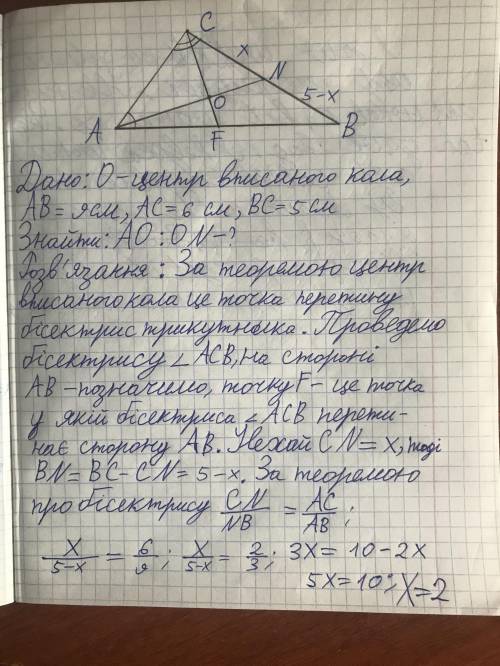 C
x
N
5-x
O
A
F
B
Дано: O-центр вписаного кола,
AB= 9см, AC=6 см, BC=5 см
Знайти: AO : ON-?
Розв'язання : За теоремою центр
вписаного кола це точка перетину
бісектрис трикутника. Проведемо
бісектрису ∠ACB, на стороні
AB -позначимо, точку F- це точка
у якій бісектриса ∠ACB перети-
нає сторону AB. Нехай CN= x, тоді
BN= BC- CN= 5-x. За теоремою
про бісектрису CN/NB = AC/AB ;
x/5-x = 6/9 ; x/5-x = 2/3 ; 3x= 10-2x
5x=10; x=2